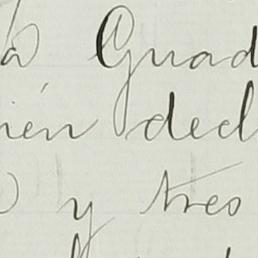 a Guad
ién decl
y tres